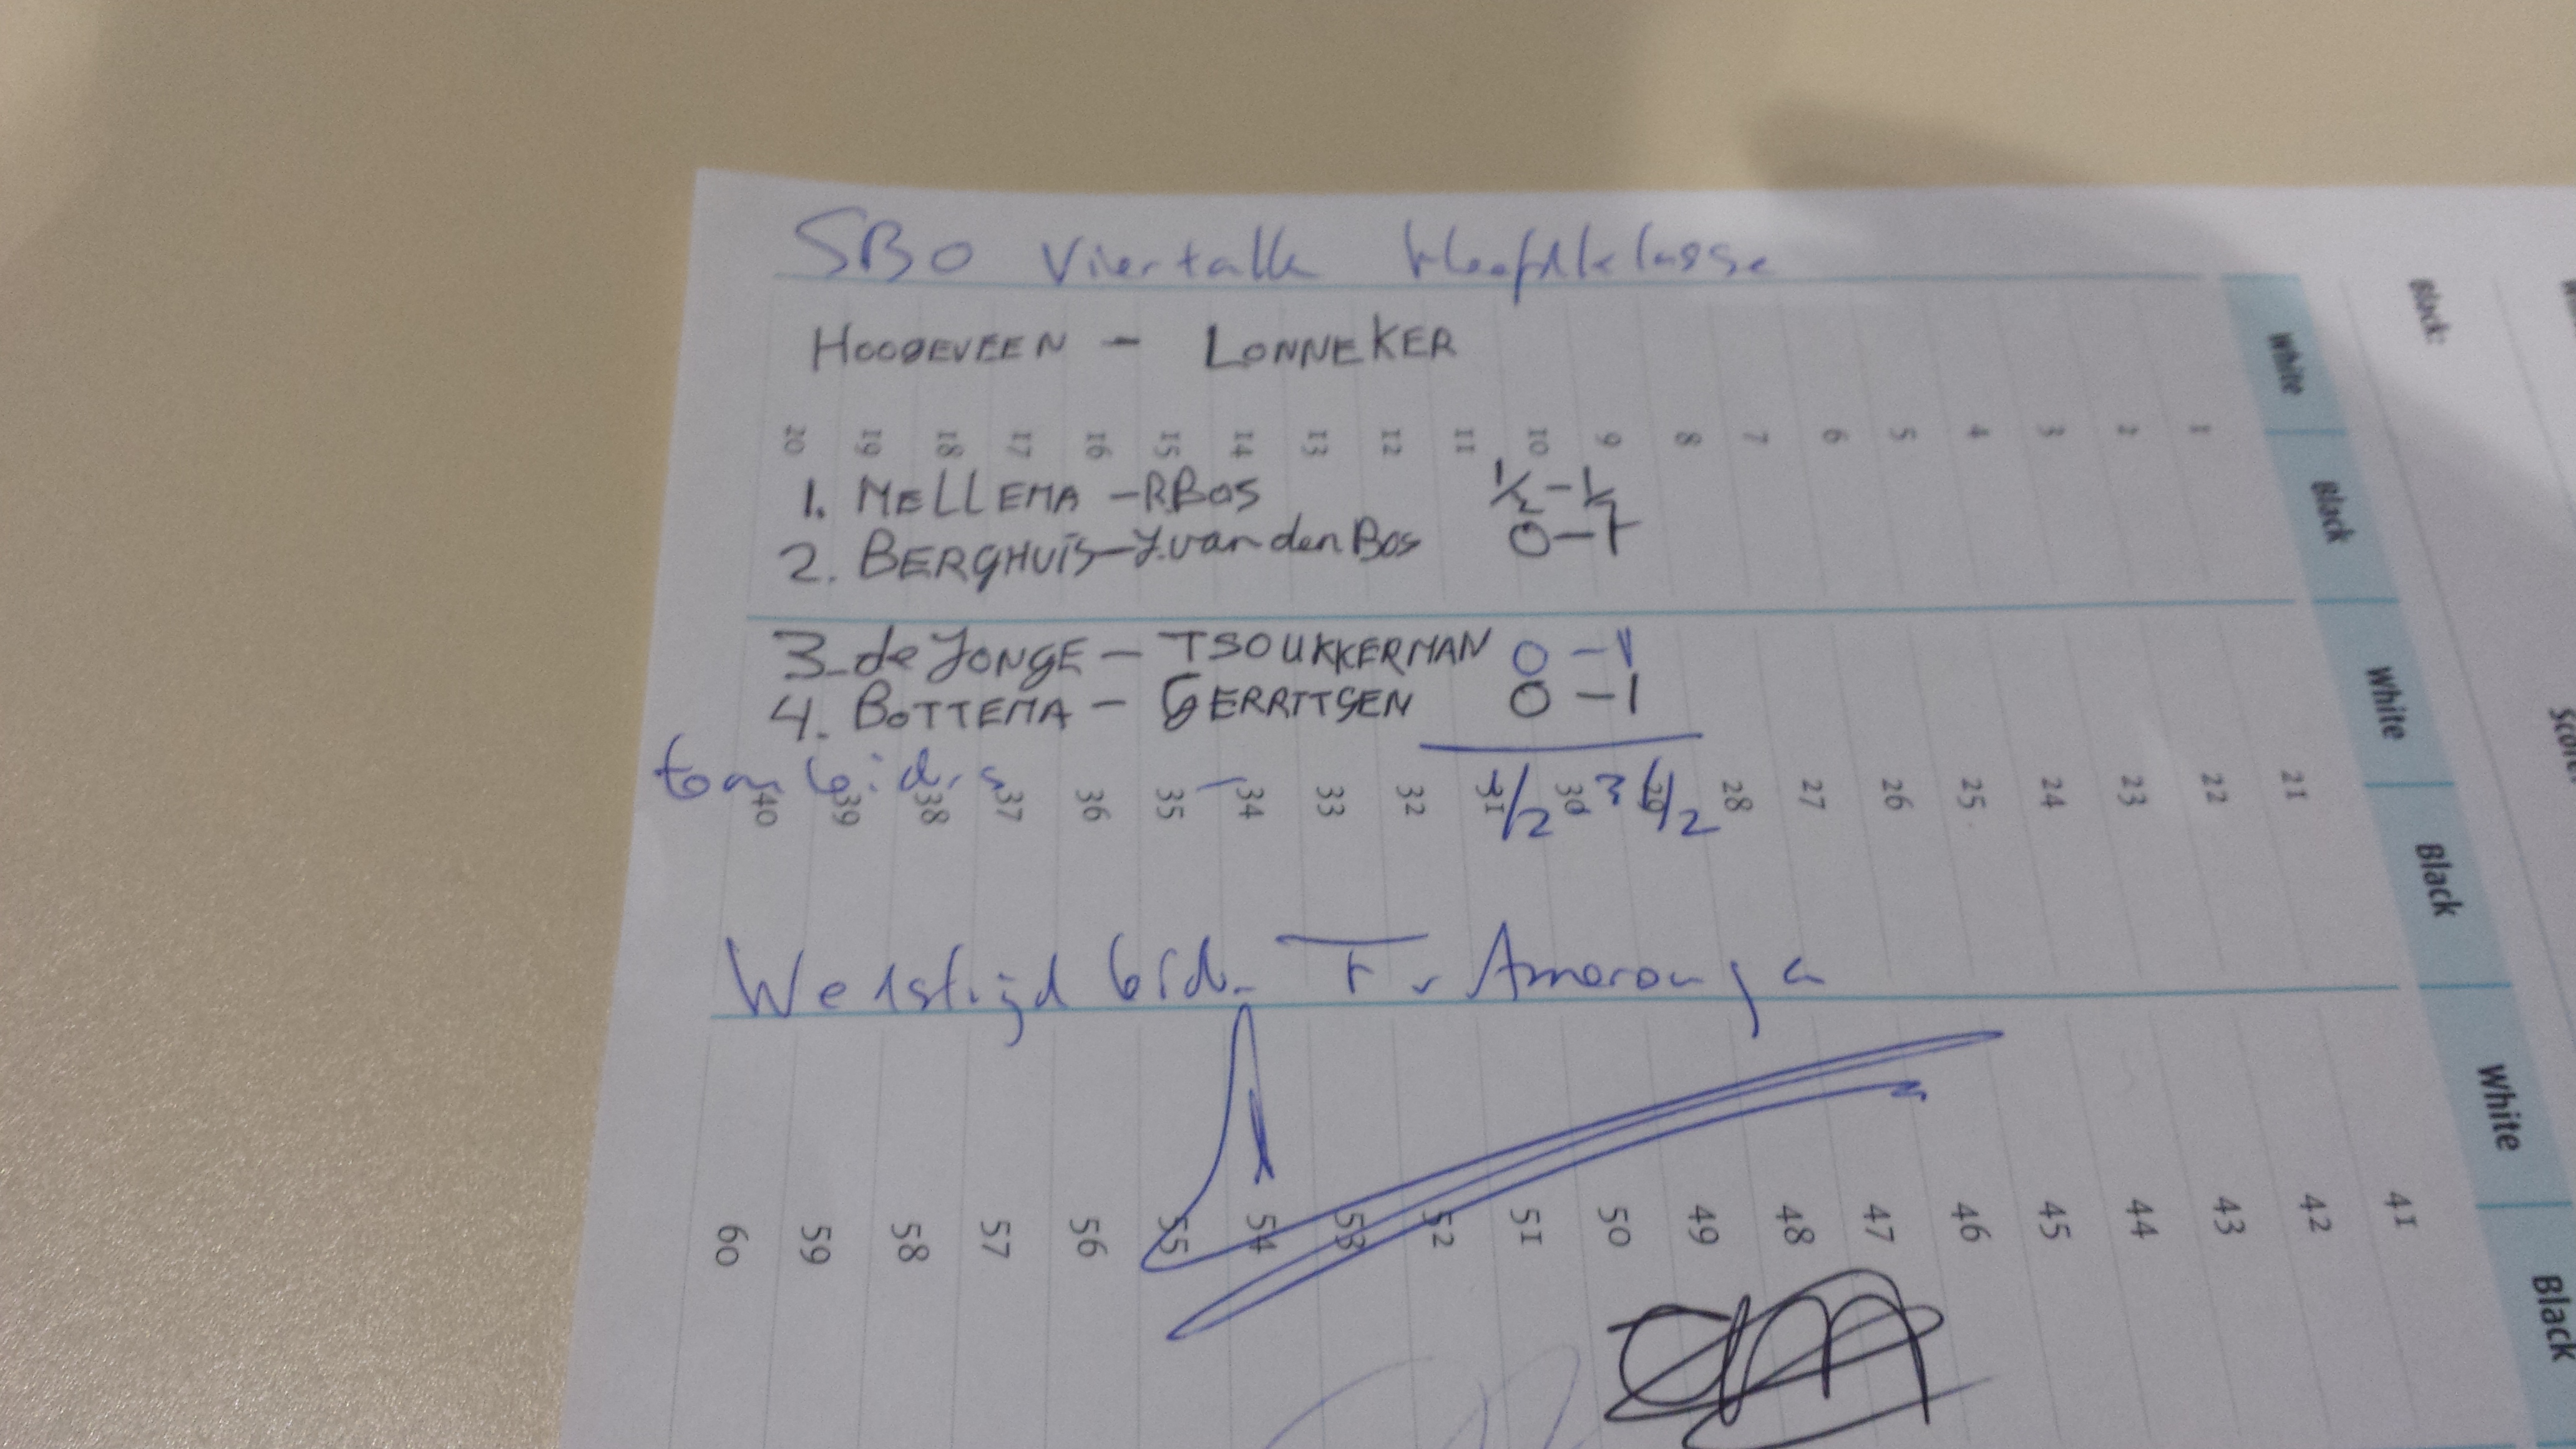 SBO Viertallen Hoofdklasse
HOOGEVEEN - LONNEKER
20 19 18 17 16 15 14 13 12 11 10 9 8 7 6 5 4 3 2 1
1. MELLEMA - R BOS ½ - ½
2. BERGHUIS - J. van den Bos 0 - 1
3. de JONGE - TSOUKKERMAN 0 - 1
4. BOTTEMA - GERRITSEN 0 - 1
40 39 38 37 36 35 34 33 32 31 30 29 28 27 26 25 24 23 22 21
1/2 3 1/2
Wedstrijd F v Amerongen
60 59 58 57 56 55 54 53 52 51 50 49 48 47 46 45 44 43 42 41
White
Black
White
Black
White
Black
Black: